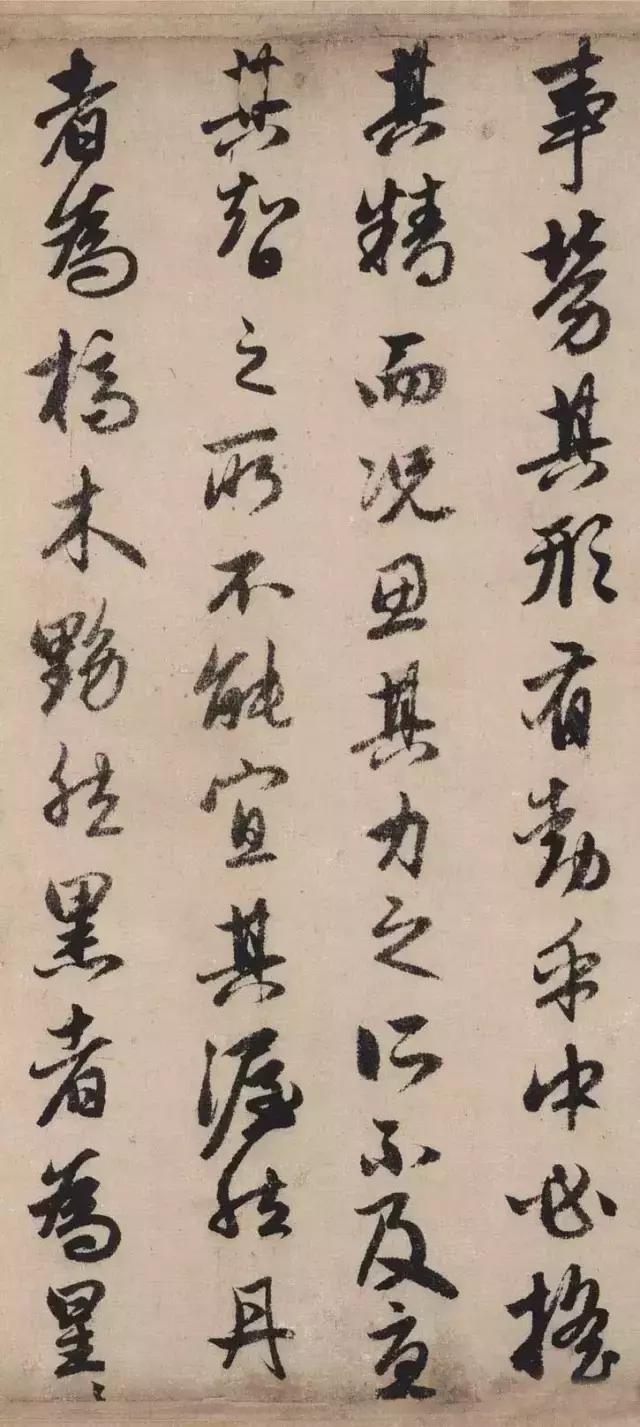 事勞其形有動乎中必搖
其精而况思其力之所不及憂
其智之所不能宜其渥然丹
者為槁木黟然黑者為星〻